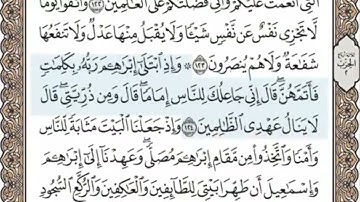 ٱلَّتِىٓ أَنْعَمْتُ عَلَيْكُمْ وَأَنِّى فَضَّلْتُكُمْ عَلَى ٱلْعَٰلَمِينَ ١٢٢ وَٱتَّقُوا۟ يَوْمًا
لَّا تَجْزِى نَفْسٌ عَن نَّفْسٍ شَيْـًٔا وَلَا يُقْبَلُ مِنْهَا عَدْلٌ وَلَا تَنفَعُهَا
شَفَٰعَةٌ وَلَا هُمْ يُنصَرُونَ ١٢٣ ۞ وَإِذِ ٱبْتَلَىٰٓ إِبْرَٰهِـۧمَ رَبُّهُۥ بِكَلِمَٰتٍ
فَأَتَمَّهُنَّ ۖ قَالَ إِنِّى جَاعِلُكَ لِلنَّاسِ إِمَامًا ۖ قَالَ وَمِن ذُرِّيَّتِى ۖ قَالَ
لَا يَنَالُ عَهْدِى ٱلظَّٰلِمِينَ ١٢٤ وَإِذْ جَعَلْنَا ٱلْبَيْتَ مَثَابَةً لِّلنَّاسِ
وَأَمْنًا وَٱتَّخِذُوا۟ مِن مَّقَامِ إِبْرَٰهِـۧمَ مُصَلًّى ۖ وَعَهِدْنَآ إِلَىٰٓ إِبْرَٰهِـۧمَ
وَإِسْمَٰعِيلَ أَن طَهِّرَا بَيْتِىَ لِلطَّآئِفِينَ وَٱلْعَٰكِفِينَ وَٱلرُّكَّعِ ٱلسُّجُودِ